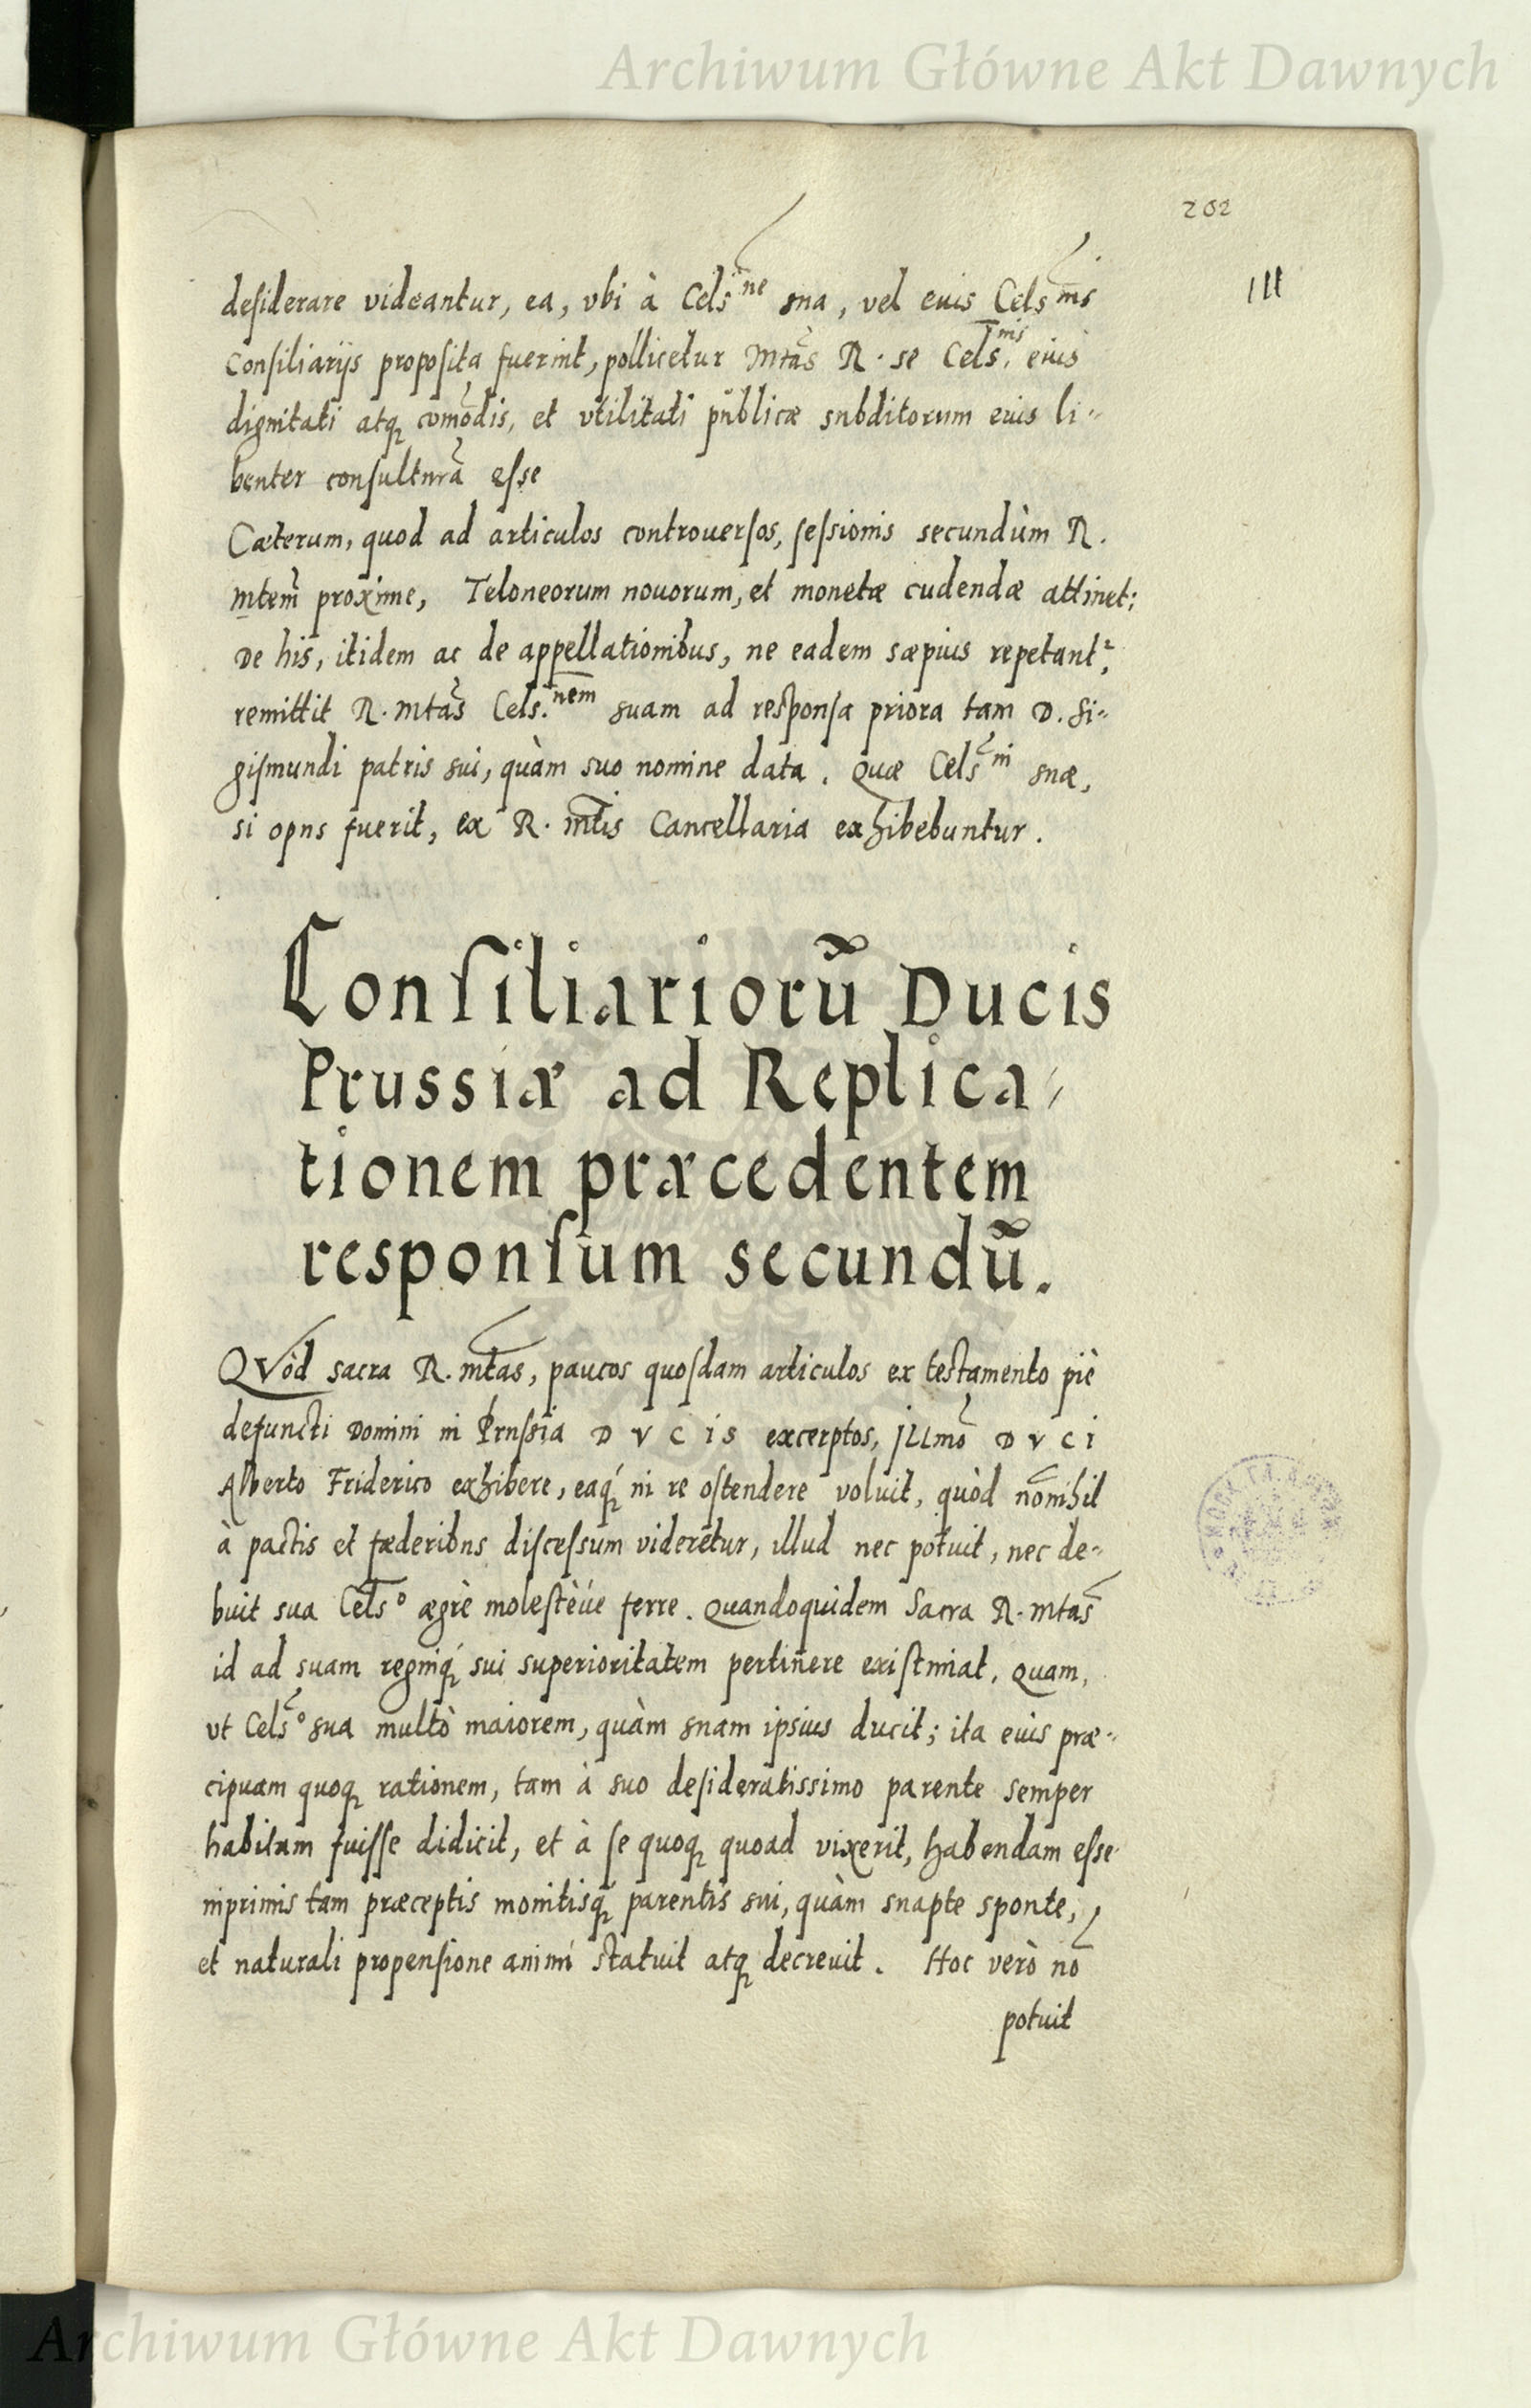 Archiwum Główne Akt Dawnych
202
111
desiderare videantur, ea, vbi à Cels^ne sua, vel eius Cels^nis
Consiliarijs proposita fuerint, pollicetur Mtas R. se Cels.^nis eius
dignitati atq comodis, et vtilitati publicæ subditorum eius li-
benter consulturā esse
Cæterum, quod ad articulos controuersos, sessionis secundùm R.
Mtem proxime, Teloneorum nouorum, et monetæ cudendæ attinet;
De his, itidem ac de appellationibus, ne eadem sæpius repetant^r,
remittit R. Mtas Cels.^nem suam ad responsa priora tam D. Si-
gismundi patris sui, quàm suo nomine data. Quæ Cels^ni suæ,
si opus fuerit, ex R. Mtis Cancellaria exhibebuntur.
Consiliariorū Ducis
Prussiæ ad Replica-
tionem præcedentem
responsum secundū.
QVòd sacra R. Mtas, paucos quosdam articulos ex testamento piè
defuncti Domini in Prussia DVCIS excerptos, Jllmo DVCI
Alberto Friderico exhibere, eaq́ in re ostendere voluit, quòd nōnihil
à pactis et fæderibus discessum videretur, illud nec potuit, nec de-
buit sua Cels^o ægrè molestèúe ferre. Quandoquidem Sacra R. Mtas
id ad suam regniq́ sui superioritatem pertinere existimat. Quam,
vt Cels^o sua multò maiorem, quàm suam ipsius ducit; ita eius præ-
cipuam quoq rationem, tam à suo desideratissimo parente semper
habitam fuisse didicit, et à se quoq quoad vixerit, habendam esse
inprimis tam præceptis monitisq́ parentis sui, quàm suapte sponte,
et naturali propensione animi statuit atq decreuit. Hoc verò nō
potuit
Archiwum Główne Akt Dawnych